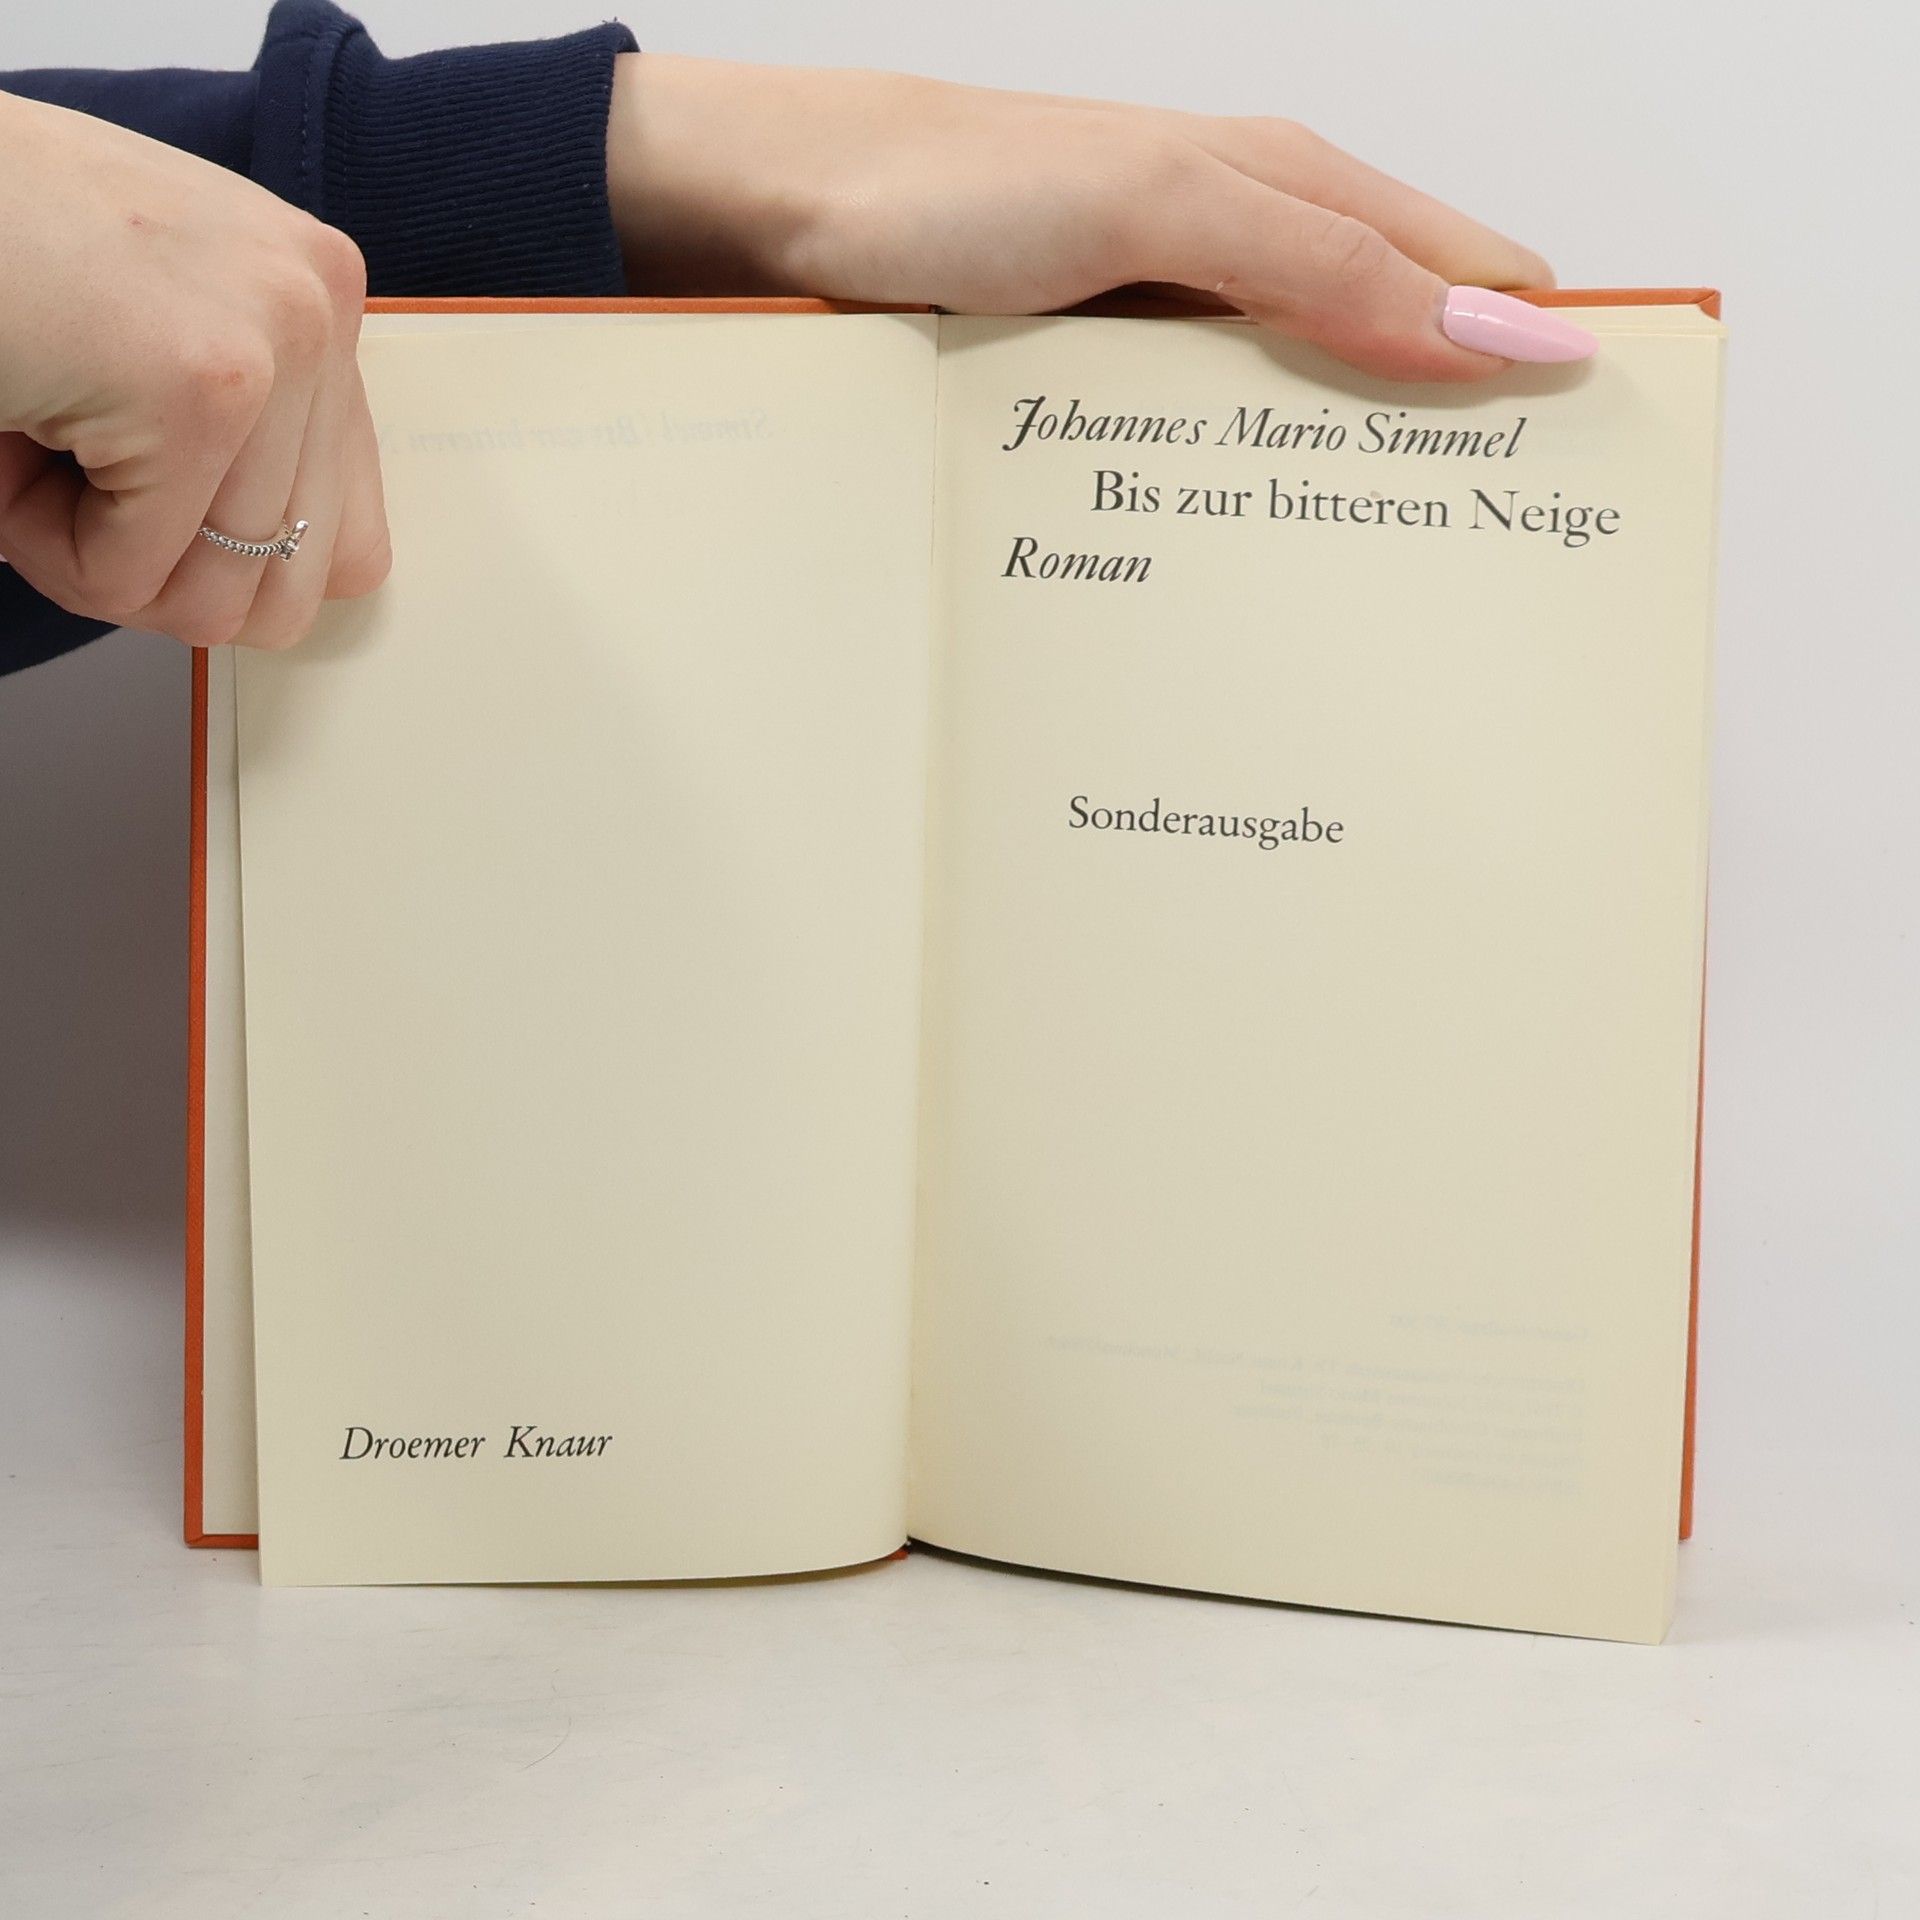 Johannes Mario Simmel
Bis zur bitteren Neige
Roman
Sonderausgabe
Droemer Knaur